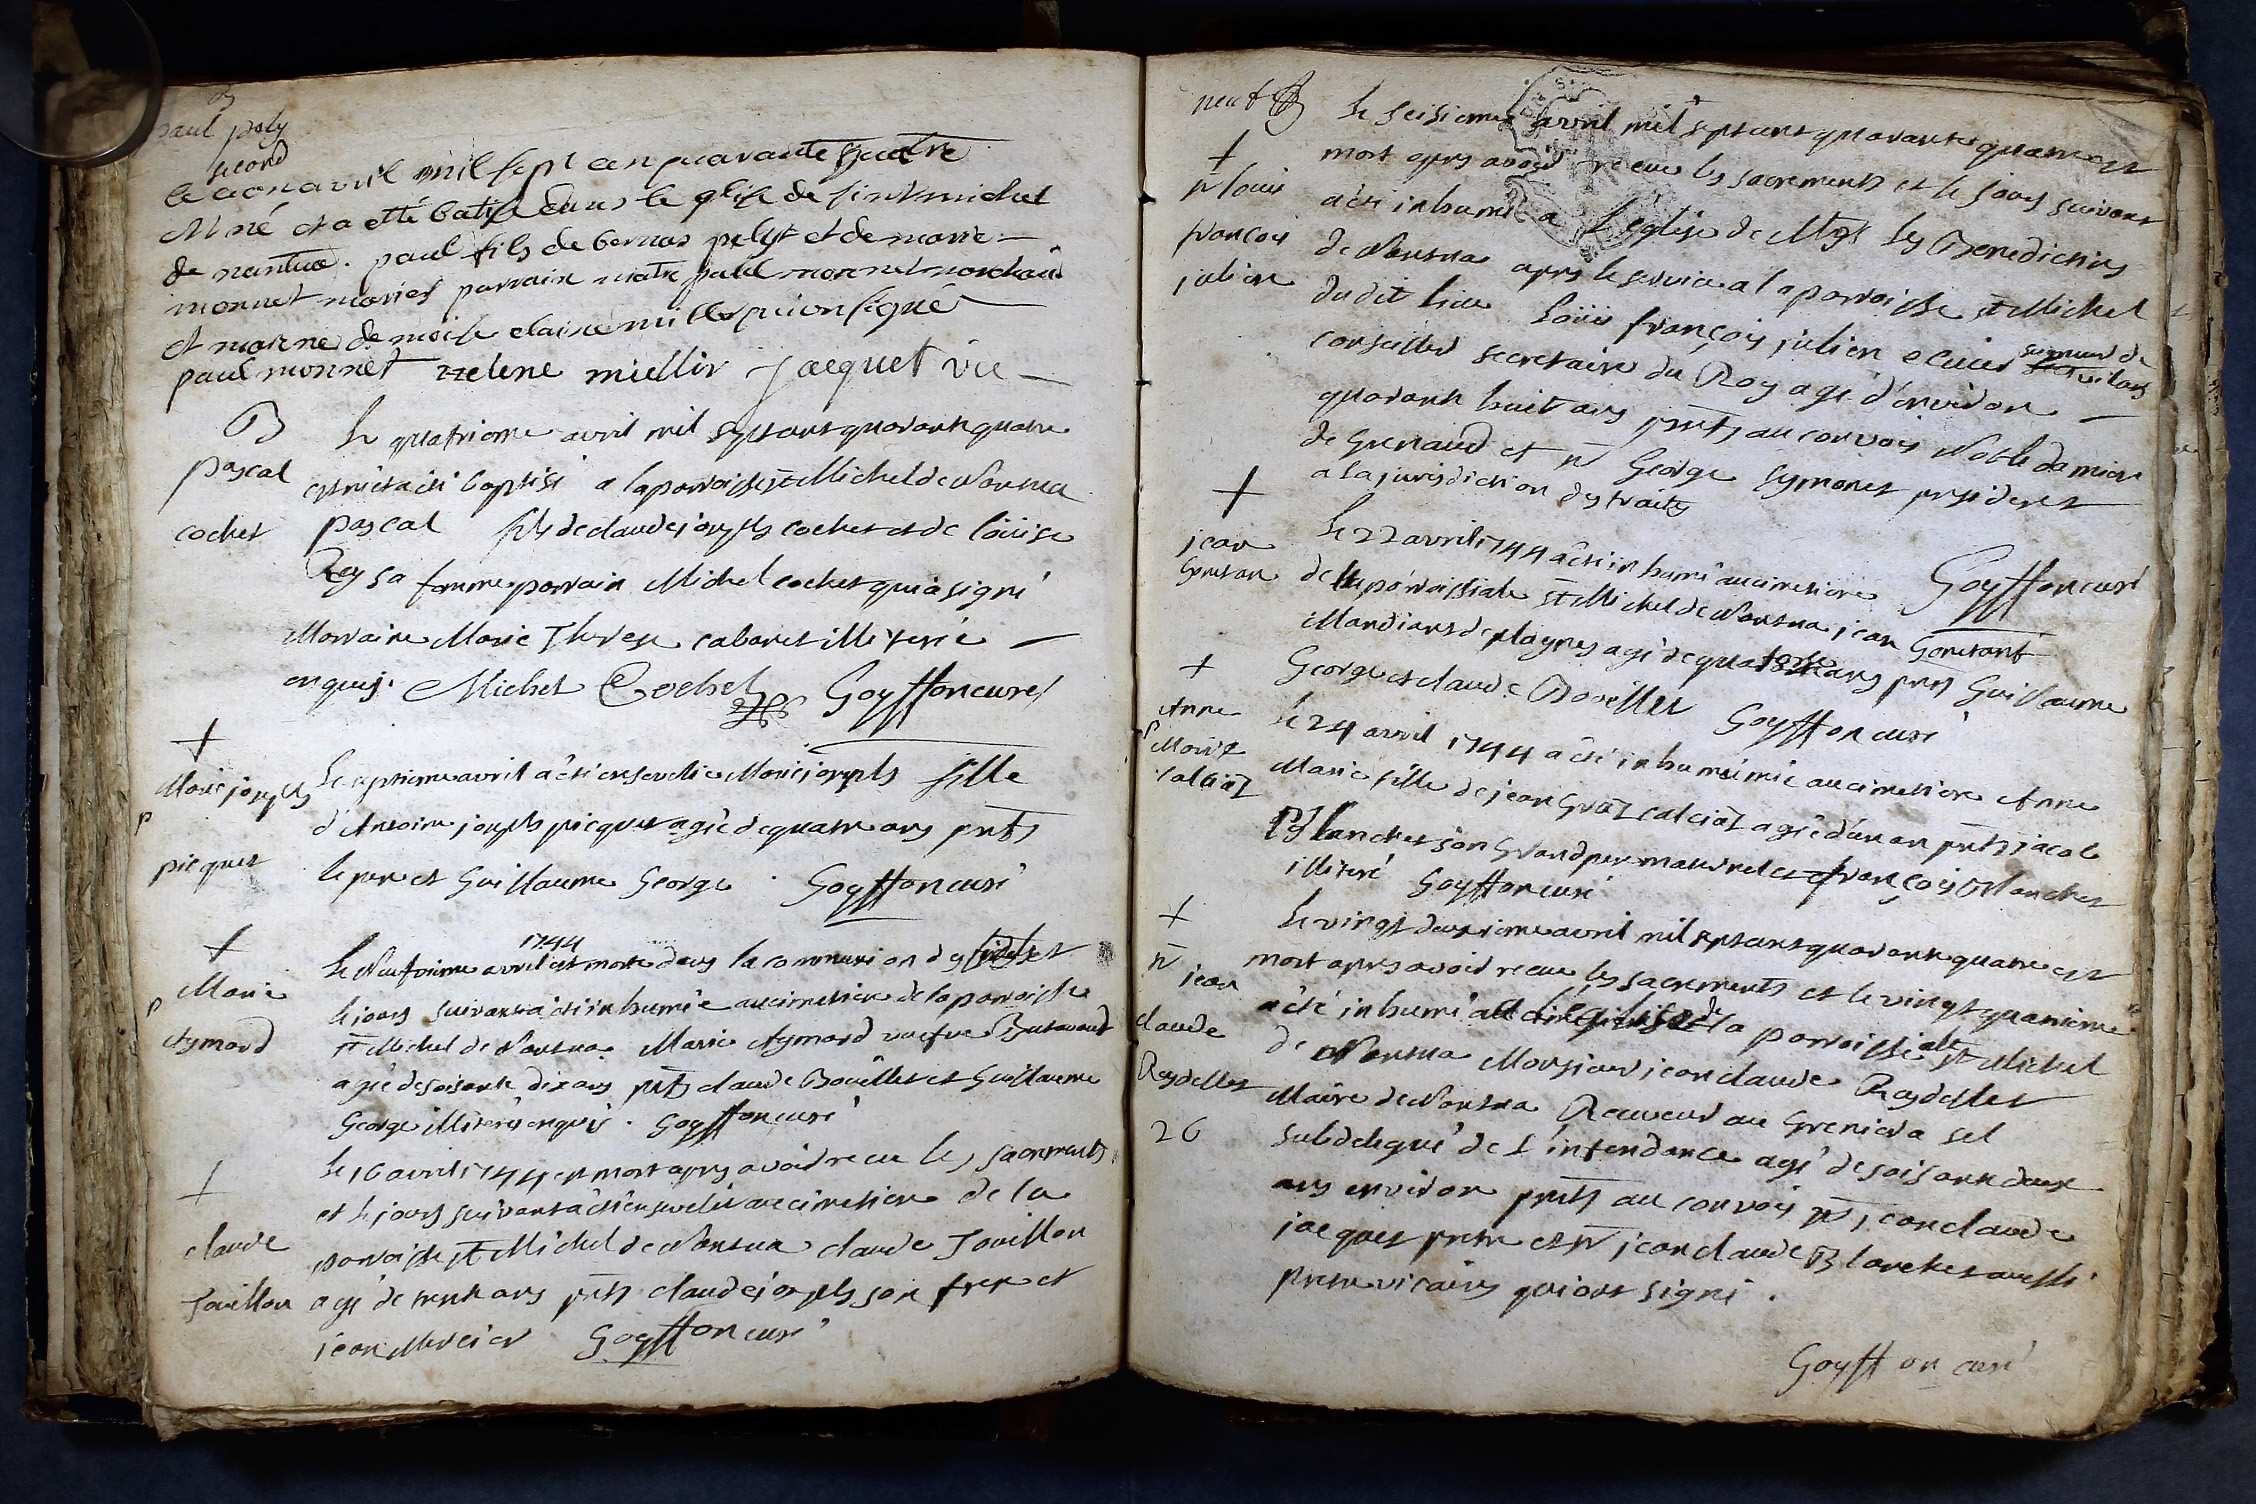 paul poly
second
le avril mil sept cen quarante quatre
né et a etté batisé dans le glise de sint michel
de nantua. paul fils de bernar polyt et de marie
monnet mariés parrain matre paul monnet marchand
et marene de moiselle elaine millier qui on signé
paul monnet helene miellir jacquet vic
B
pascal
cochet
le quatrieme avril mil septcent quarante quatre
est né et a été baptisé a la paroisse st Michel de Nantua
pascal fils de claude joseph cochet et de loüise
Rey sa femme parrain Michel cochet qui a signé
Marraine Marie Therese cabanet illiterée
enquis. Michel Cochet Goyffon curé
+
Marie joseph
p
picquet
le septieme avril a été ensevelie Marie joseph fille
d'Antoine joseph picquet agée de quatre ans pnts
le pere et Guillaume George. Goyffon curé
+
Marie
p
Aymard
1744
le Neufvieme avril est morte dans la communion des fideles et
le jour suivant a été inhumée au cimetiere de la paroisse
st Michel de Nantua Marie Aymard vuefve Butavand
agée de soisante dix ans pnts claude Boüillet et Guillaume
George illiterés enquis. Goyffon curé
+
claude
Jouillon
le 16 avril 1744 est mort apres avoir receu les sacrements
et le jour suivant a été enseveli au cimetiere de la
paroisse st Michel de Nantua claude Jouillon
agé de trente ans pnts claude joseph son frere et
jean Mercier Goyffon curé
neuf B
+
n louis
françois
julien
le seisieme avril mil septcent quarante quatre est
mort apres avoir receu les sacrements et le jour suivant
a été inhumé a l'église de Mrs les Benedictins
de Nantua apres le service a la paroisse st Michel
dudit lieu loüis françois julien ecuier seigneur de
conseiller secretaire du Roy agé d'environ
quarante huit ans pnts au convoy Noble damien
de Grenaud et n George Symonet president
a la jurisdiction des traites
Goyffon curé
+
jean
Gonetan
le 22 avril 1744 a été inhumé au cimetiere
de la paroissiale st Michel de Nantua jean Gonetant
Mandiant de plagnes agé de quatorze ans pnts Guillaume
George et claude Boüillet Goyffon curé
+
Anne
p
Marie
calciaz
le 24 avril 1744 a été inhumée au cimetiere Anne
Marie fille de jean Graz calciaz agée d'un an pnts jacob
Blanchet son Grand pere maternel et françois Blanchet
illiteré Goyffon curé
+
n
jean
claude
Reydellet
26
le vingt deuxieme avril mil septcent quarante quatre est
mort apres avoir receu les sacrements et le vingt quatrieme
a été inhumé a l'eglise de la paroissiale st Michel
de Nantua Monsieur jean claude Reydellet
Maire de Nantua Receveur au Grenier a sel
subdelegué de l'intendance agé de soisante deux
ans environ pnts au convoy n jean claude
jacquet pretre et n jean claude Blanchet aussi
pretre vicaires qui ont signé.
Goyffon curé